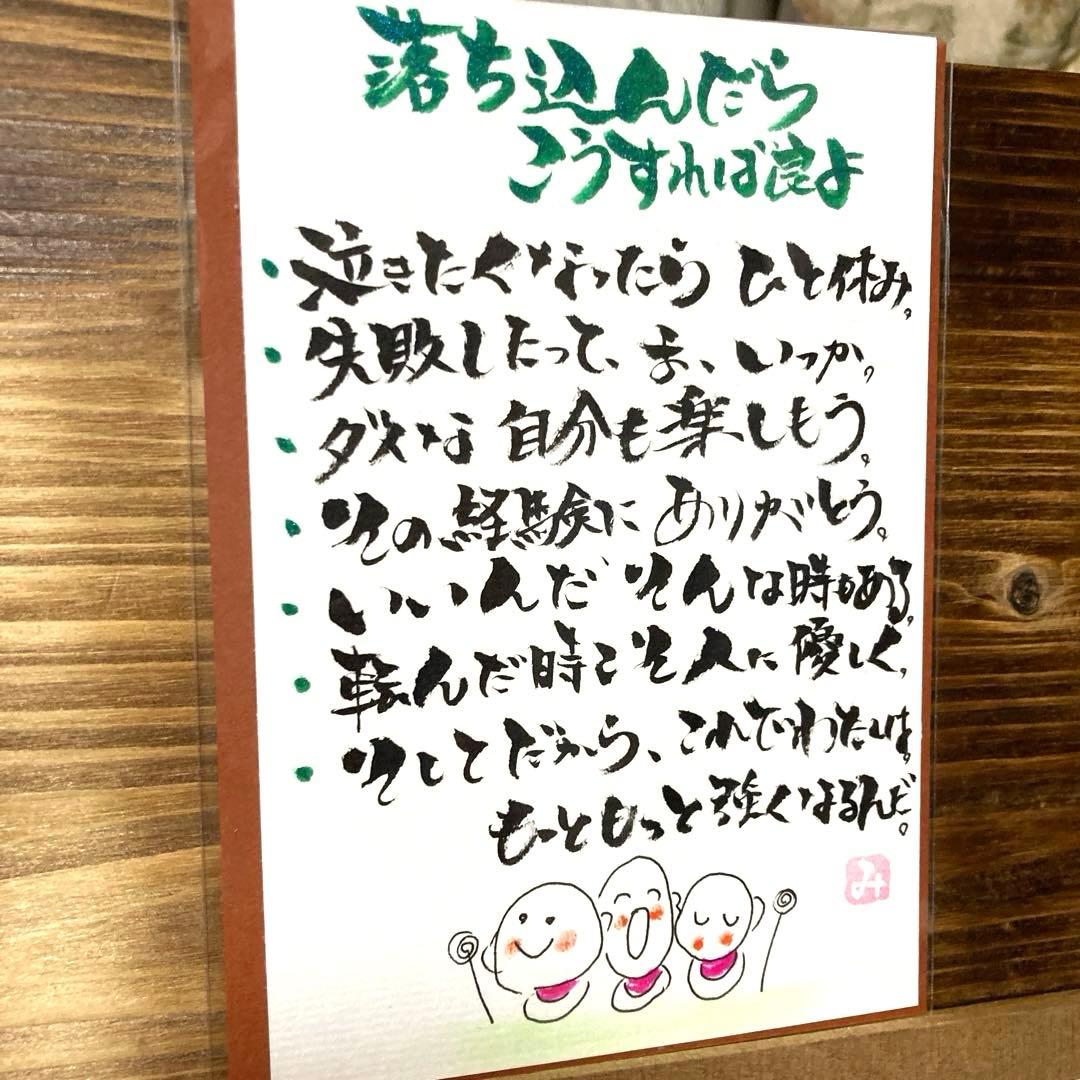 落ち込んだら
こうすれば良よ
・泣きたくなったら ひと休み。
・失敗したって、ま、いっか。
・ダメな 自分も楽しもう。
・その経験に ありがとう。
・いいんだ そんな時もある。
・転んだ時こそ人に優しく。
・そしてだから、これでわたしは。
もっともっと強くなるんだ。
み